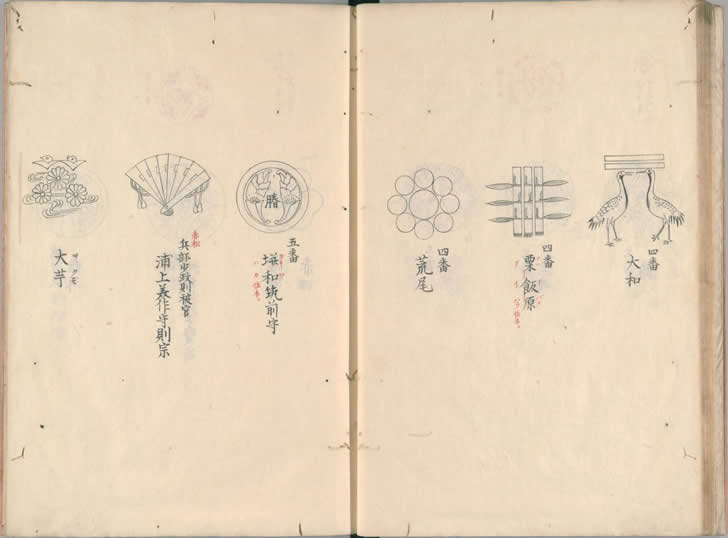 四番
大和
四番
粟飯原
四番
荒尾
勝
五番
垪和筑前守
赤松
兵部少政則被官
浦上美作守則宗
大芋